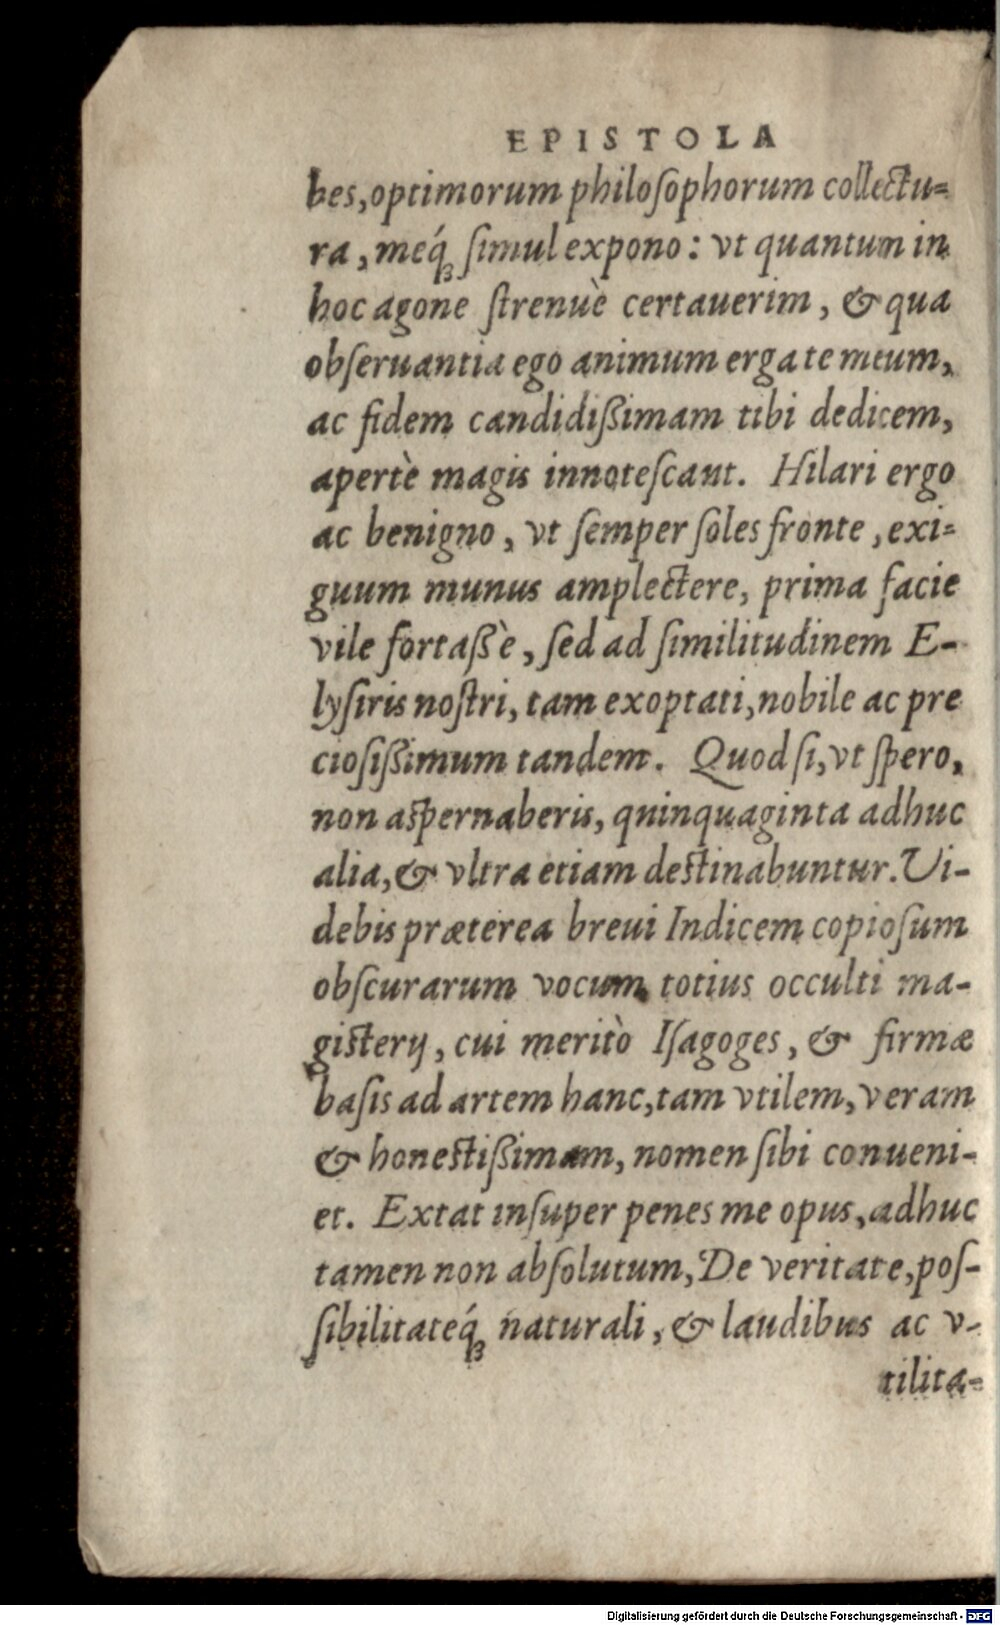 EPISTOLA
bes, optimorum philoſophorum collectu=
ra, meq́ꝫ ſimul expono: vt quantum in
hoc agone ſtrenuè certauerim, & qua
obſeruantia ego animum erga te meum,
ac fidem candidißimam tibi dedicem,
apertè magis innoteſcant. Hilari ergo
ac benigno, vt ſemper ſoles fronte, exi=
guum munus amplectere, prima facie
vile fortaßè, ſed ad ſimilitudinem E-
lyſiris noſtri, tam exoptati, nobile ac pre
cioſißimum tandem. Quod ſi, vt ſpero,
non aſpernaberis, quinquaginta adhuc
alia, & vltra etiam deſtinabuntur. Vi-
debis præterea breui Indicem copioſum
obſcurarum vocum totius occulti ma-
giſterij, cui meritò Iſagoges, & firmæ
baſis ad artem hanc, tam vtilem, veram
& honeſtißimam, nomen ſibi conueni-
et. Extat inſuper penes me opus, adhuc
tamen non abſolutum, De veritate, poſ-
ſibilitateq́ꝫ naturali, & laudibus ac v-
tilita=
Digitalisierung gefördert durch die Deutsche Forschungsgemeinschaft - DFG